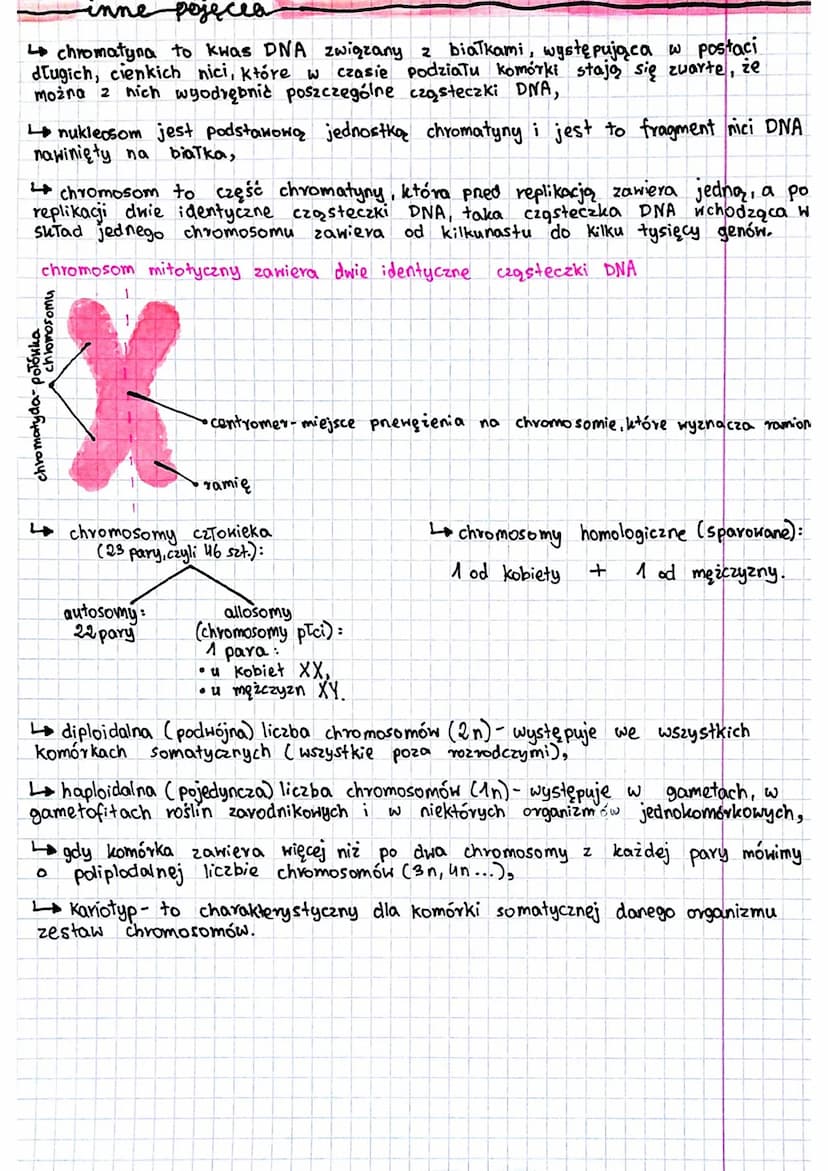 inne pojęcia
↳ chromatyna to kwas DNA związany z białkami, występująca w postaci
długich, cienkich nici, które w czasie podziału komórki stają się zwarte, że
można z nich wyodrębnić poszczególne cząsteczki DNA,
↳ nukleosom jest podstawową jednostką chromatyny i jest to fragment nici DNA
nawinięty na białka,
↳ chromosom to część chromatyny, która przed replikacją zawiera jedną, a po
replikacji dwie identyczne cząsteczki DNA, taka cząsteczka DNA wchodząca w
skład jednego chromosomu zawiera od kilkunastu do kilku tysięcy genów.
chromosom mitotyczny zawiera dwie identyczne cząsteczki DNA
chromatyda- połówka
chromosomu
centromer- miejsce przewężenia na chromosomie, które wyznacza ramion
ramię
↳ chromosomy człowieka
(23 pary, czyli 46 szt.):
↳ chromosomy homologiczne (sparowane):
1 od kobiety + 1 od mężczyzny.
autosomy:
22 pary
allosomy
(chromosomy płci):
1 para:
• u kobiet XX,
• u mężczyzn XY.
↳ diploidalna (podwójna) liczba chromosomów (2n)- występuje we wszystkich
komórkach somatycznych (wszystkie poza rozrodczymi),
↳ haploidalna (pojedyncza) liczba chromosomów (1n)- występuje w gametach, w
gametofitach roślin zarodnikowych i w niektórych organizmów jednokomórkowych,
↳ gdy komórka zawiera więcej niż po dwa chromosomy z każdej pary mówimy
o poliplodalnej liczbie chromosomów (3n, 4n...),
↳ Kariotyp- to charakterystyczny dla komórki somatycznej danego organizmu
zestaw chromosomów.